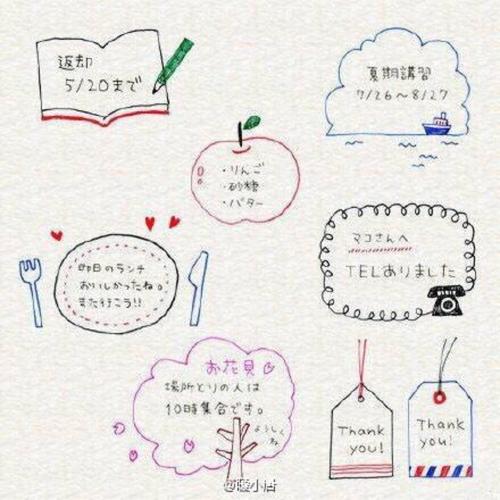 返却
5/20まで
夏期講習
7/26〜8/27
・りんご
・砂糖
・バター
マコさんへ
TELありました
昨日のランチ
おいしかったね。
また行こう!!
お花見
場所とりの人は
10時集合です。
よろしくね
Thank
you!
Thank
you!
@暖小店